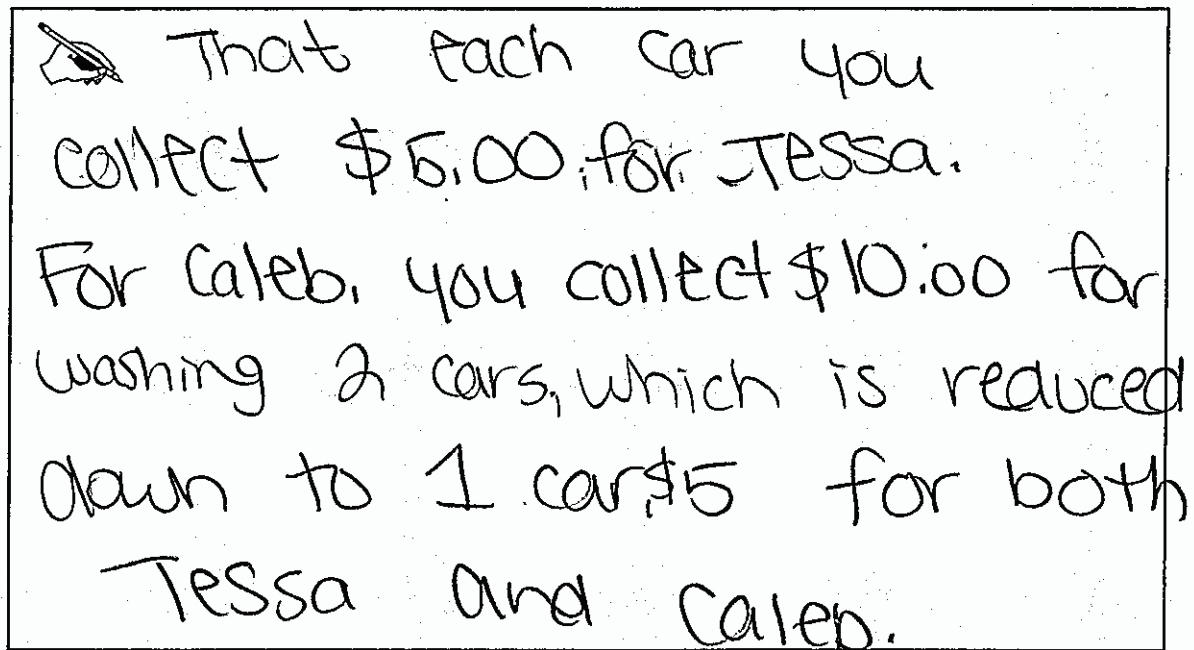 That each car you
collect $5.00, for Tessa.
For Caleb, you collect $10.00 for
washing 2 cars, which is reduced
down to 1 car,$5 for both
Tessa and Caleb.